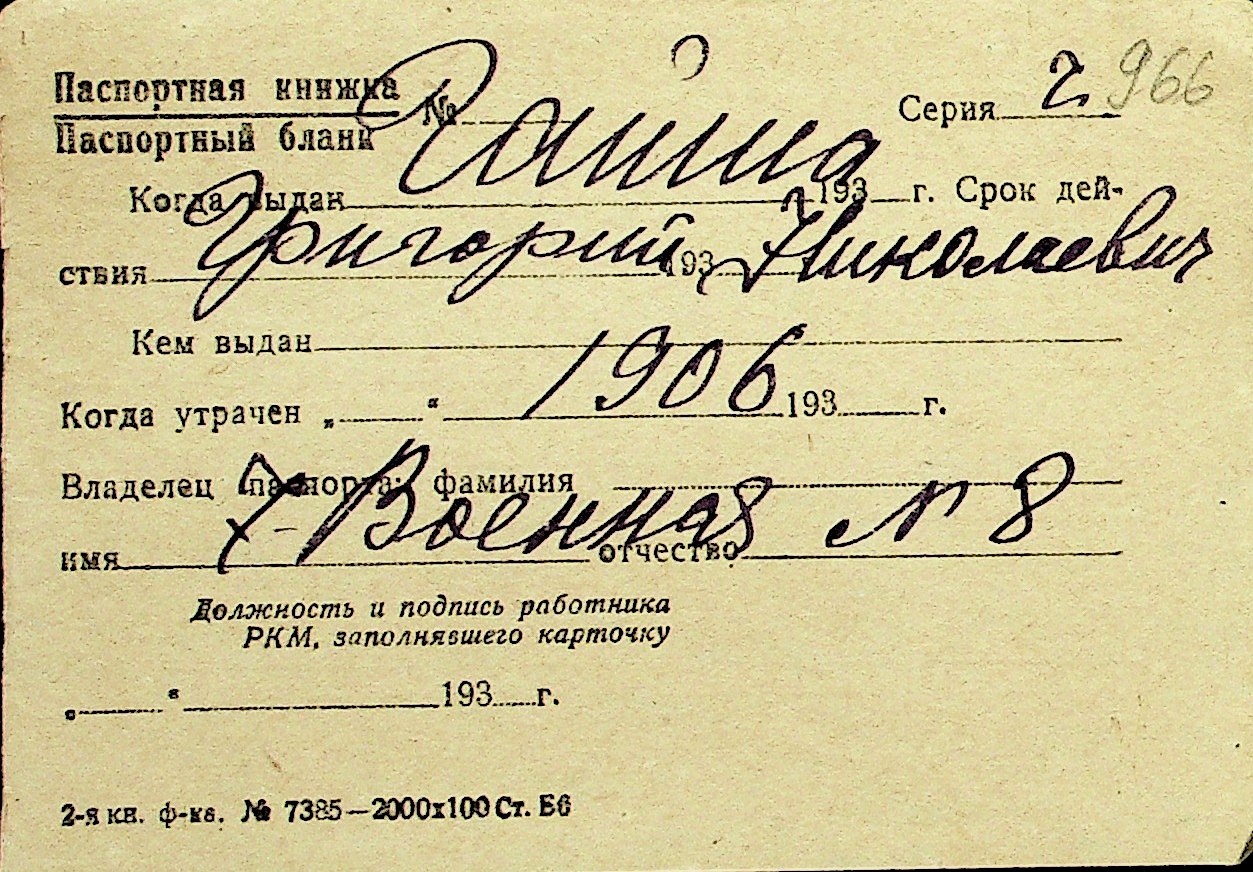 Паспортная книжка №
Серия 966
Паспортный бланк
Когда выдан 193 г. Срок дей-
ствия 193
Григорий Николаевич
Кем выдан
1906
Когда утрачен „ “ 193 г.
Владелец паспорта: фамилия
7-Военная N 8
имя отчество
Должность и подпись работника
РКМ, заполнявшего карточку
„ “ 193 г.
2-я кв. ф-ка. № 7385—2000х100 Ст. Б6